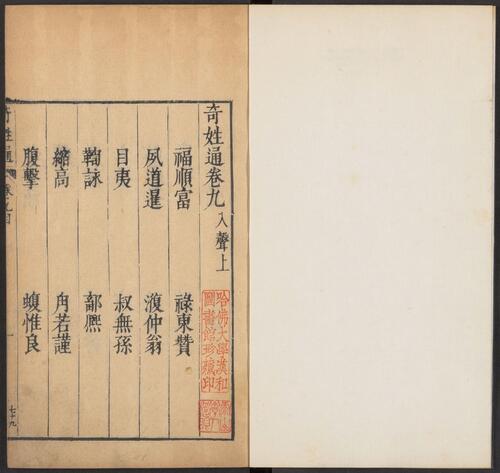 奇姓通卷九 入聲上
福順富 祿東贊
夙道暹 澓仲翁
目夷 叔無孫
鞫詠 郁熙
縮高 角若謹
腹擊 蝮惟良
奇姓通
一
七十九
哈佛大學漢和
圖書館珍藏印